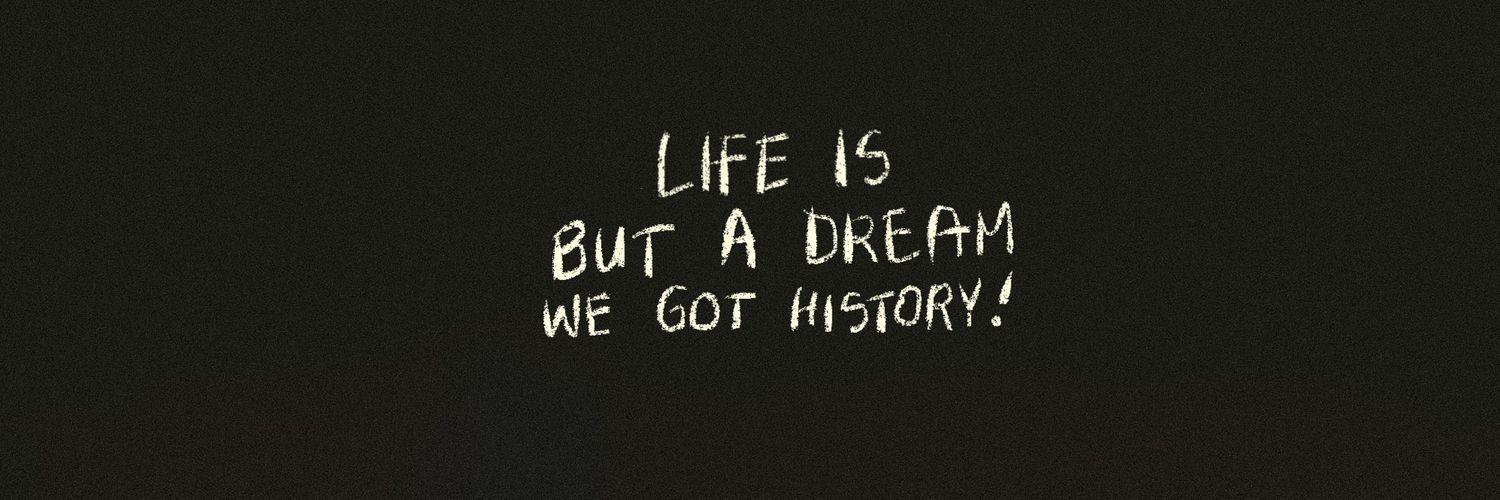 LIFE IS
BUT A DREAM
WE GOT HISTORY!